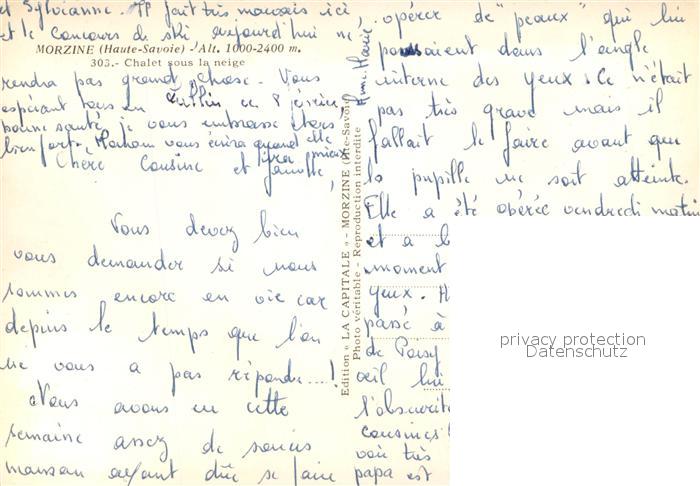 et Sylvianne. Il fait très mauvais ici
et le Concours de ski aujourd'hui ne
MORZINE (Haute-Savoie) - Alt. 1000-2400 m.
303.- Chalet sous la neige
rendra pas grand chose. Vous
espérant tous en ce 8 février
bonne santé, je vous embrasse tous
bien fort. Maman vous écrira quand elle
ira mieux
Anne. Marie
Chère Cousine et famille,
Vous devez bien
vous demander si nous
sommes encore en vie car
depuis le temps que l'on
ne vous a pas répondu....!
Nous avons eu cette
semaine assez de soucis
maman ayant dûe se faire
Edition « LA CAPITALE » - MORZINE (Hte-Savoie)
Photo véritable - Reproduction interdite
opérer de "peaux" qui lui
poussaient dans l'angle
interne des yeux. Ce n'était
pas très grave mais il
fallait le faire avant que
la pupille ne soit atteinte.
Elle a été opérée vendredi matin
et a
moment
yeux.
passé à
de Poisy
œil lui
l'obscurité
cousines
voir très
papa est
privacy protection
Datenschutz